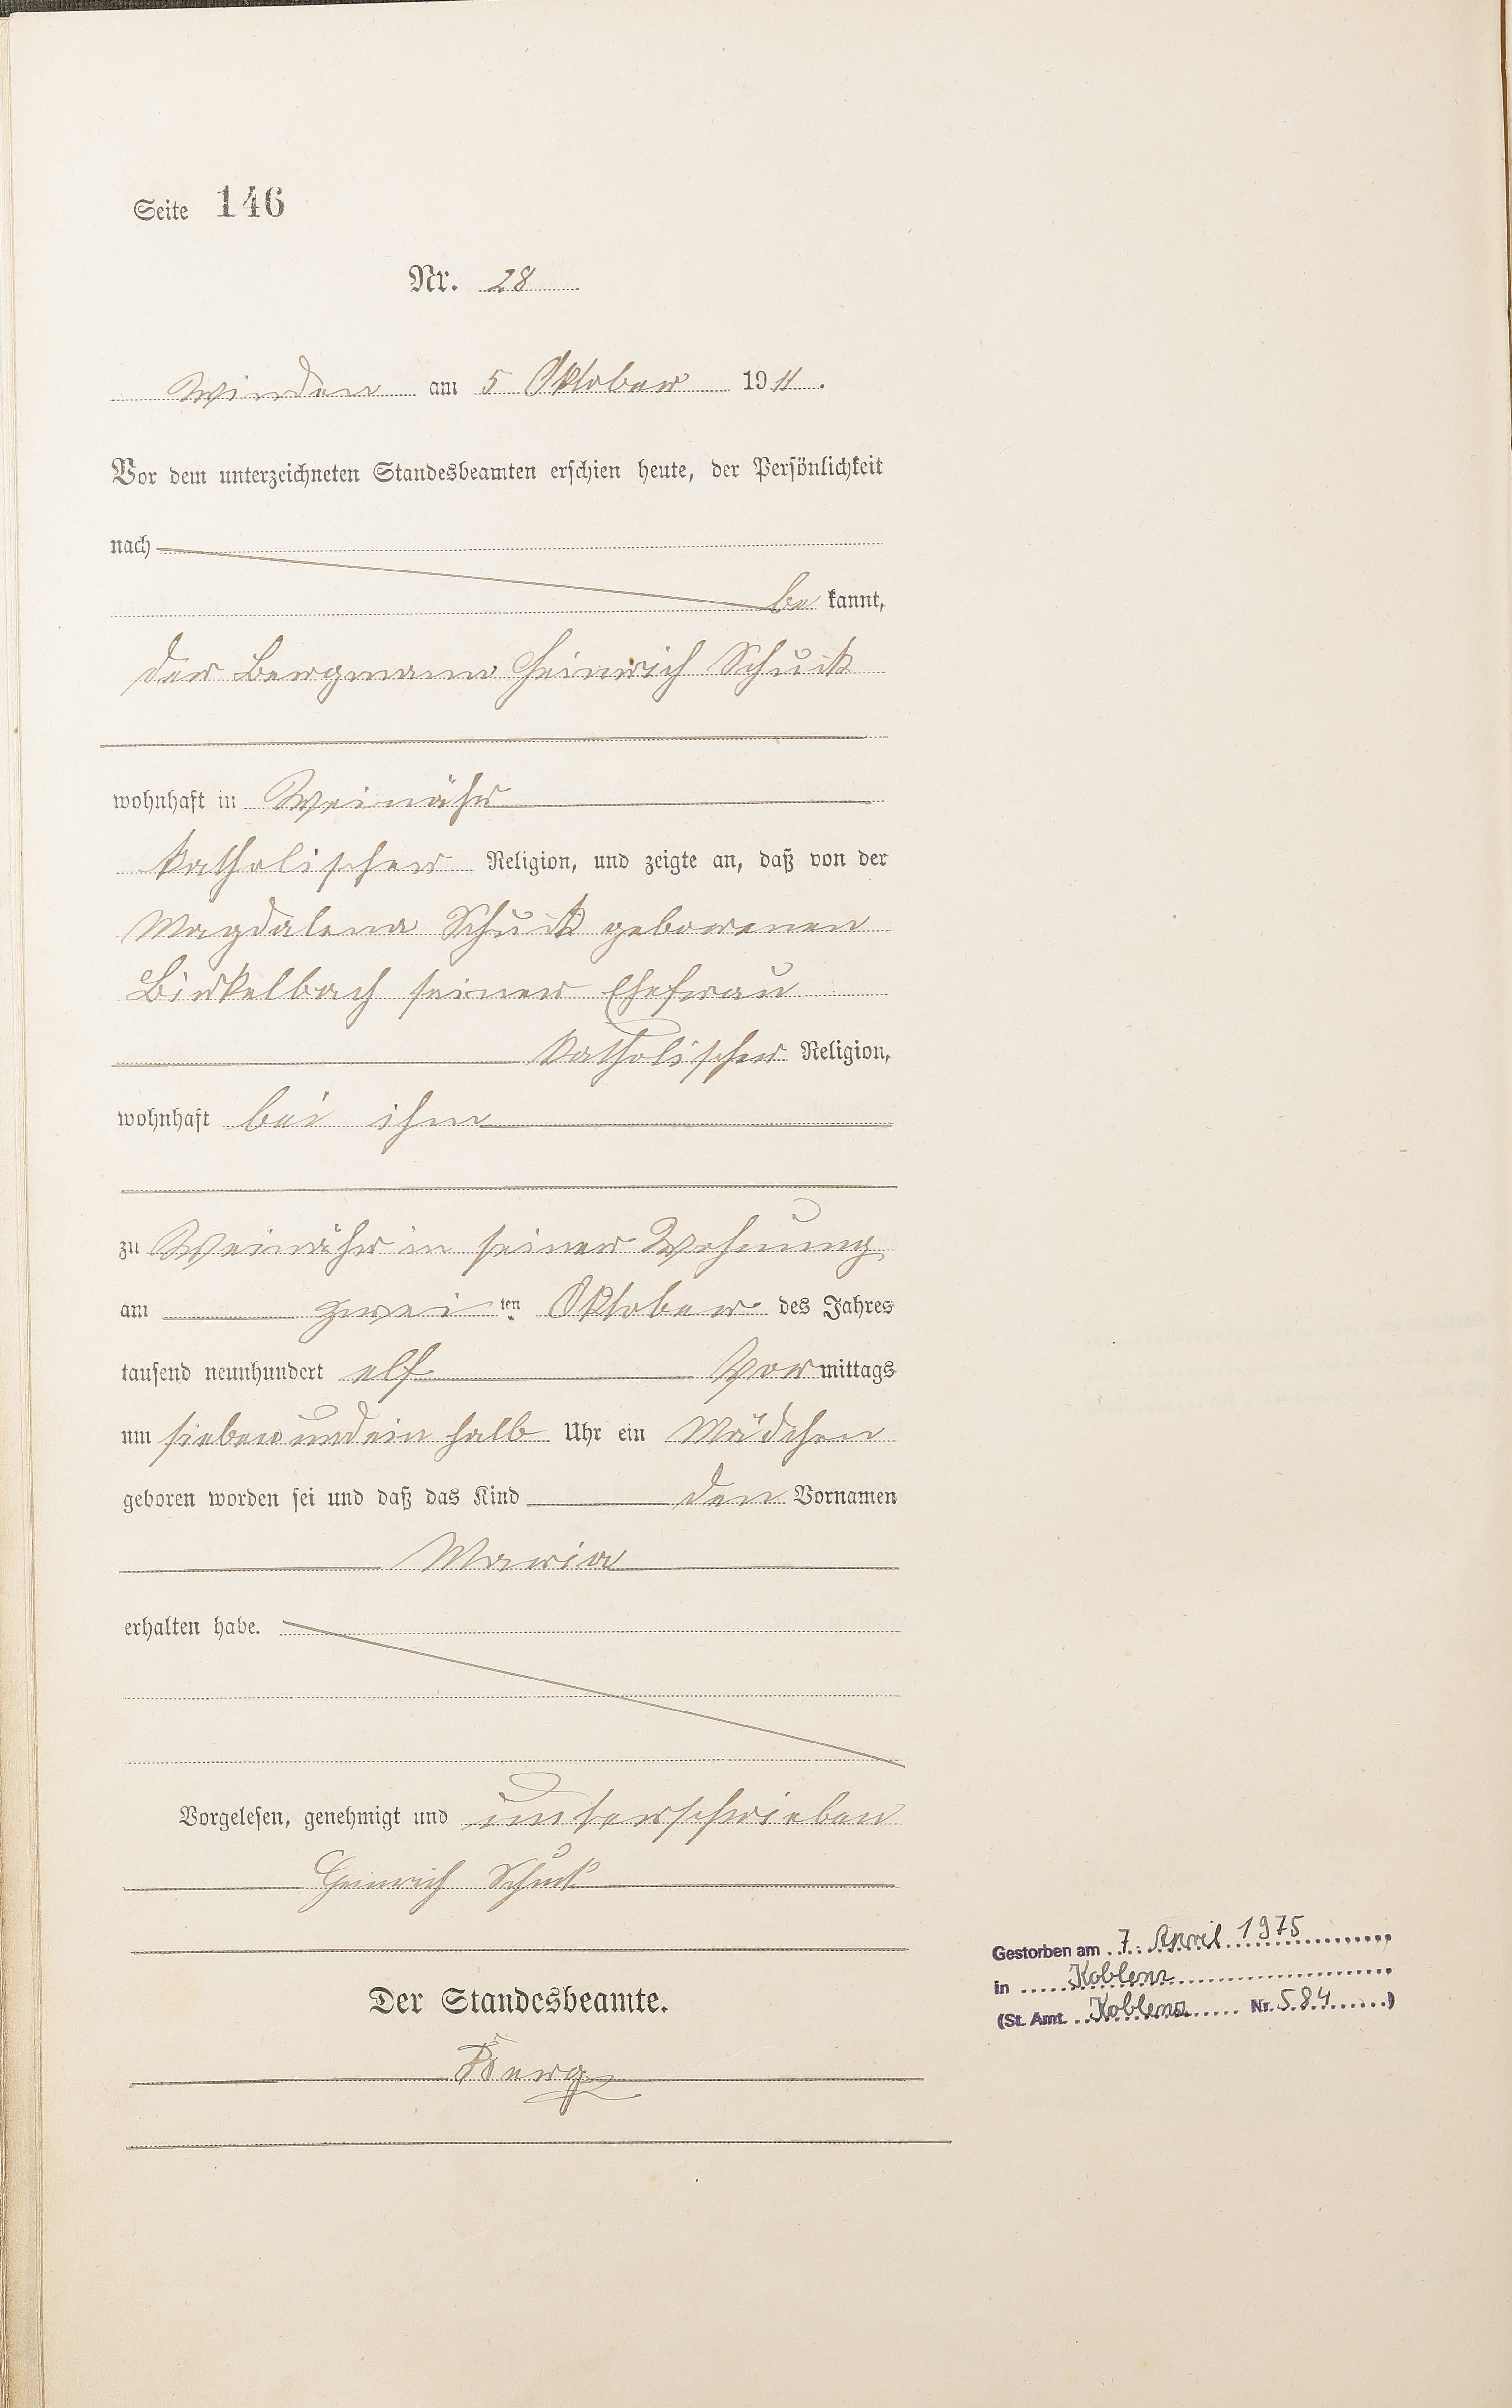 Seite 146
Nr. 28
Winden am 5 Oktober 1911.
Vor dem unterzeichneten Standesbeamten erschien heute, der Persönlichkeit
nach
be kannt,
der Bergmann Heinrich Schuck
wohnhaft in Weinähr
katholischer Religion, und zeigte an, daß von der
Magdalena Schuck geborenen
Birkelbach seiner Ehefrau
katholischer Religion,
wohnhaft bei ihm
zu Weinähr in seiner Wohnung
am zwei ten Oktober des Jahres
tausend neunhundert elf Vormittags
um sieben und ein halb Uhr ein Mädchen
geboren worden sei und daß das Kind den Vornamen
Maria
erhalten habe.
Vorgelesen, genehmigt und unterschrieben
Heinrich Schuck
Der Standesbeamte.
Berg
Gestorben am 7. April 1975
in Koblenz
(St. Amt. Koblenz Nr. 584)